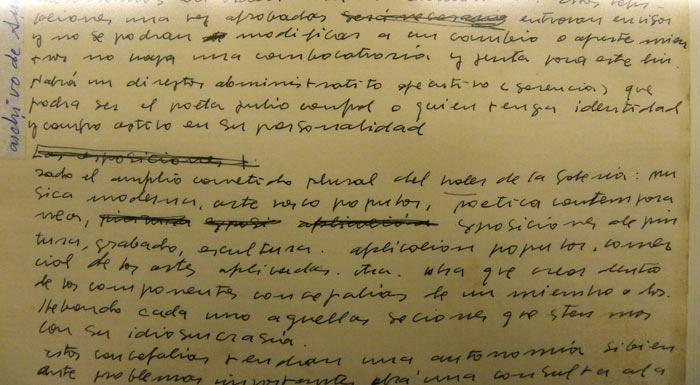 ciones una vez aprobadas será necesario entraran en vigor
y no se podran modificar a un cambio o ajuste mien
tras no haya una combocatoria y junta para este fin.
Habrá un director abministratito ejecutivo (gerencia) que
podra ser el poeta julio campal o quien tenga identidad
y campo activo en su personalidad
Las esposiciones
sado el amplio cometido plural del haber de la Galería: mu
sica moderna, arte vasco popular, poetica contempora
nea, esposi aplicación esposiciones de pin
tura, grabado, escultura. aplicacion popular, comer
cial de las artes aplicadas. etc. habra que crear dentro
de los componentes concejalias de un miembro o dos.
llebando cada uno aquellas seciones que sten mas
con su idiosincrasia.
estas concejalias tendran una autonomía si bien
ante problemas importantes abrá una consulta a la
archivo de